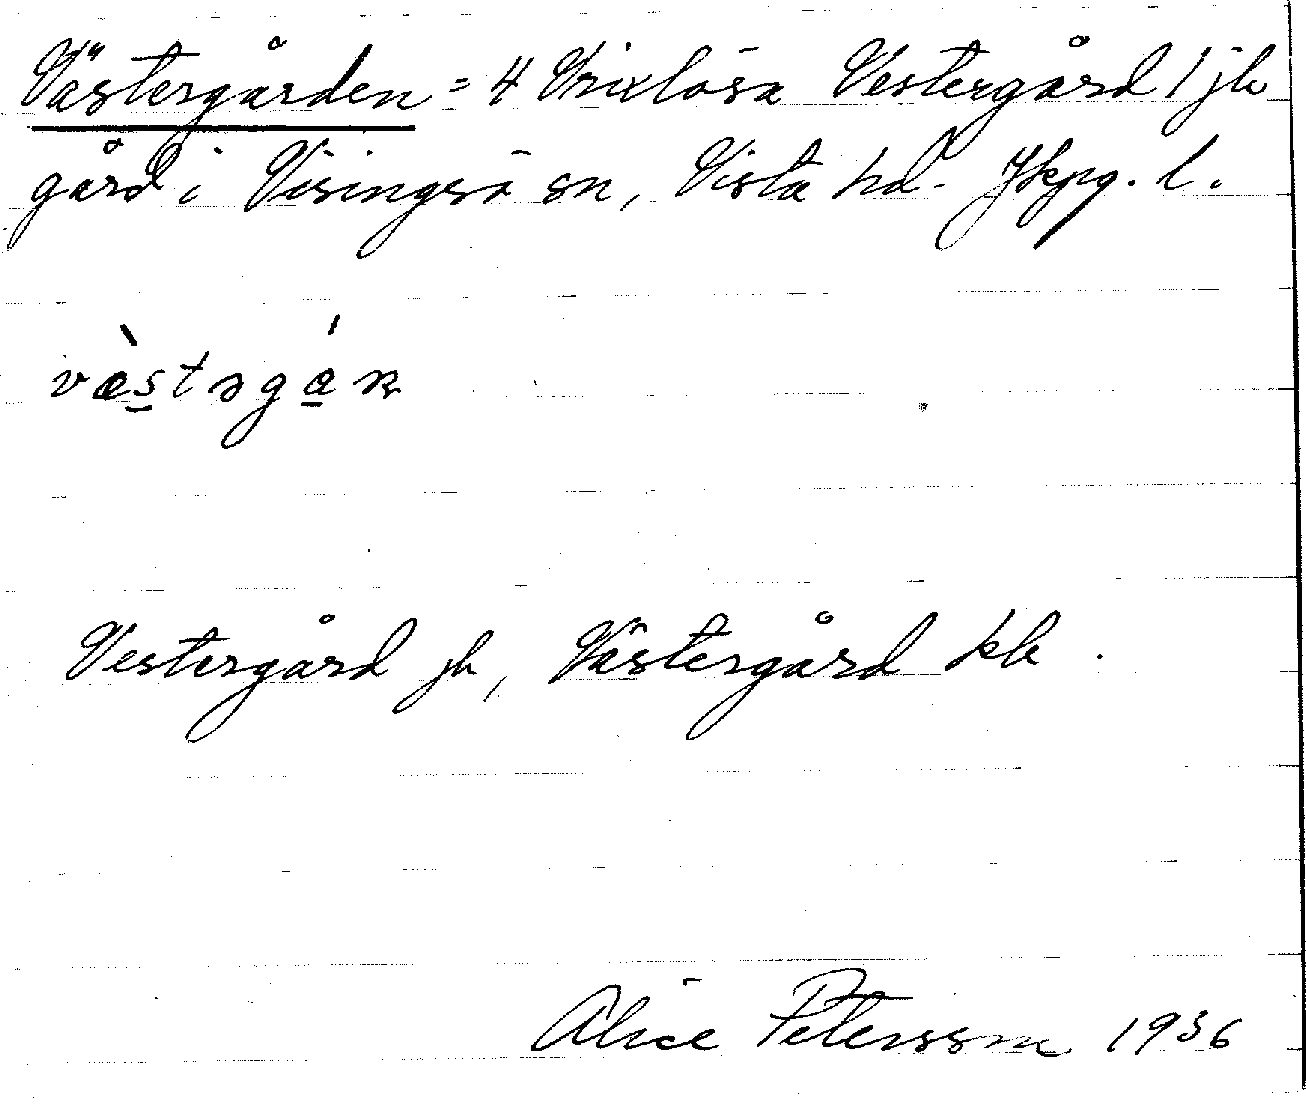 Västergården = 4 Vrixlösa Vestergård 1 jb
gård i Visingsö sn, Vista hd. Jkpg. l.
Vestergård jb, Västergård kb.
Alice Petersson 1936